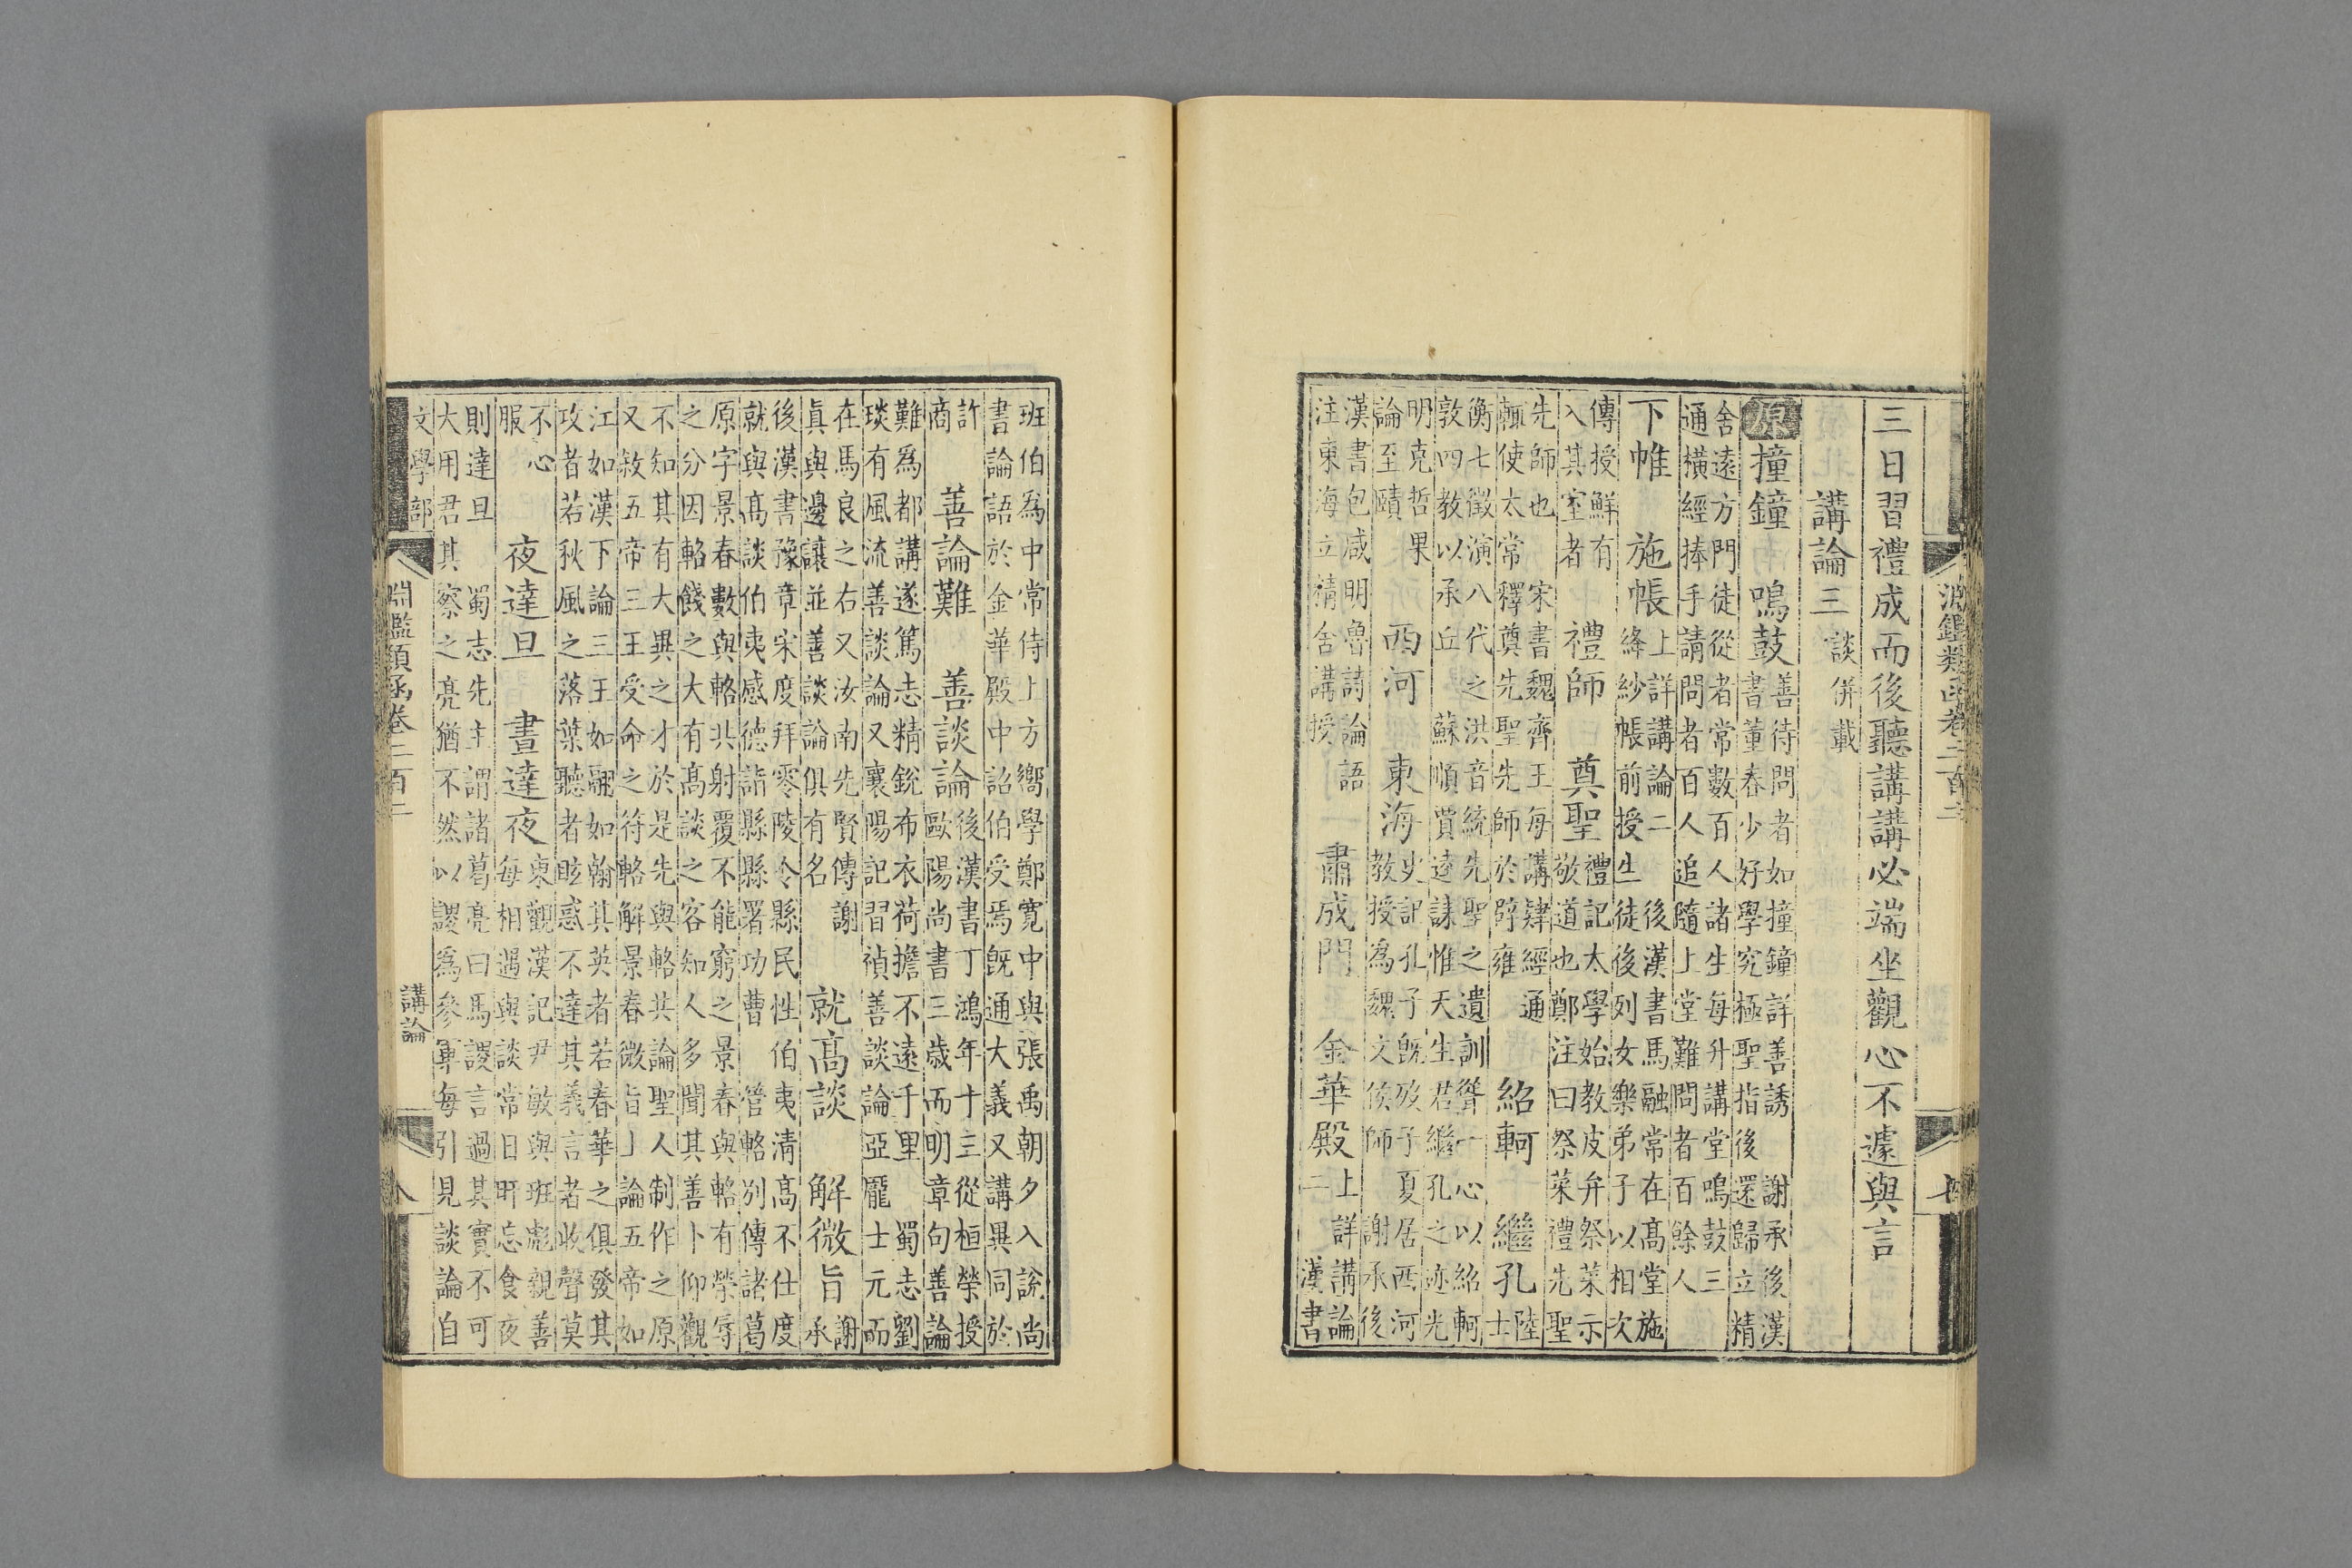 淵鑑類函卷二百二 七
三日習禮成而後聽講講必端坐觀心不遽與言
講論三 談併載
原 撞鐘 鳴鼓
善待問者如撞鐘詳善誘 謝承後漢
書董春少好學究極聖指後還歸立精
舍遠方門徒從者常數百人諸生每升講堂鳴鼓三
通橫經捧手請問者百人追隨上堂難問者百餘人
下帷 施帳
上詳講論二 後漢書馬融常在高堂施
絳紗帳前授生徒後列女樂弟子以相次
傳授鮮有
入其室者
禮師 奠聖
禮記太學始教皮弁祭菜示
敬道也鄭注曰祭菜禮先聖
先師也 宋書魏齊王每講肄經通
輒使太常釋奠先聖先師於辟雍
紹軻 繼孔
陸
士
衡七徵演八代之洪音統先聖之遺訓聳一心以紹軻
敦四教以承丘 蘇順賈逵誄惟天生君繼孔之迹光
明克哲果
論至賾
西河 東海
史記孔子旣歿子夏居西河
教授爲魏文侯師 謝承後
漢書包咸明魯詩論語
注東海立精舍講授
肅成門 金華殿
上詳講論
二 漢書
班伯爲中常侍上方嚮學鄭寬中與張禹朝夕入說尚
書論語於金華殿中詔伯受焉旣通大義又講異同於
許
商
善論難 善談論
後漢書丁鴻年十三從桓榮授
歐陽尚書三歲而明章句善論
難爲都講遂篤志精銳布衣荷擔不遠千里 蜀志劉
琰有風流善談論又襄陽記習禎善談論亞龐士元而
在馬良之右又汝南先賢傳謝
眞與邊讓並善談論俱有名
就高談 解微旨
謝
承
後漢書豫章宋度拜零陵令縣民性伯夷清高不仕度
就與高談伯夷感德詣縣縣署功曹 管輅別傳諸葛
原字景春數與輅共射覆不能窮之景春與輅有榮辱
之分因輅餞之大有高談之客知人多聞其善卜仰觀
不知其有大異之才於是先與輅共論聖人制作之原
又敘五帝三王受命之符輅解景春微旨論五帝如
江如漢下論三王如翮如翰其英者若春華之俱發其
攻者若秋風之落葉聽者眩惑不達其義言者收聲莫
不心
服
夜達旦 晝達夜
東觀漢記尹敏與班彪親善
每相遇與談常日旰忘食夜
則達旦 蜀志先主謂諸葛亮曰馬謖言過其實不可
大用君其察之亮猶不然以謖爲參軍每引見談論自
文學部 淵鑑類函卷二百二 講論 八